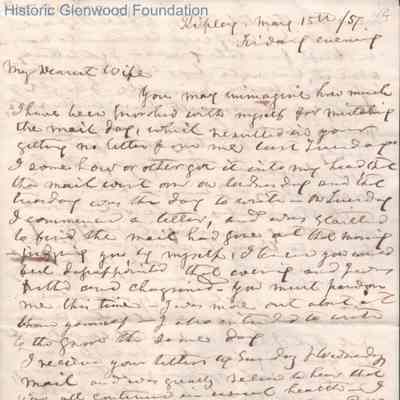 Historic Glenwood Foundation
Ripley, May 15th /57.
Friday evening
My Dearest Wife
You may immagin how much
I have been provoked with myself for mistaking
the mail day, which resulted in your
getting no letter from me last Tuesday
I some how or other got it into my head that
the mail went on on Wednesday and that
tuesday was the day to write - on Tuesday
I commenced a letter, and was startled
to find the mail had gone out that morning
by myself, I knew you would
feel disappointed that evening and I was
and chagrined - You must pardon
me this time - I was more put about it
than yourself - I also intended to write
to the same day
I receive your letters by Sunday & Wednesday
mail and was greatly relieved to hear that
you all continue in usual health - I